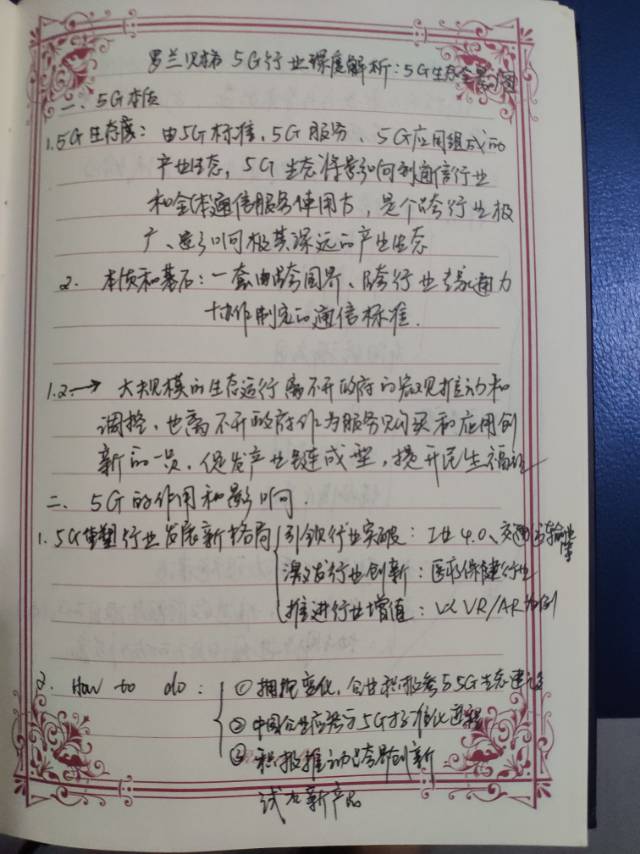 罗兰贝格 5G行业深度解析：5G生态全景图
一、5G本质
1.5G生态度：由5G标准、5G服务、5G应用组成的
产业生态，5G生态将影响到通信行业
和全体通信服务使用方，是个跨行业极
广、影响极其深远的产生生态
2. 本质和基石：一套由跨国界、跨行业专家通力
协作制定的通信标准.
1.2→ 大规模的生态运行离不开政府的宏观推动和
调控，也离不开政府作为服务购买和应用创
新的一员，促发产业链成型，提升民生福祉
二、5G的作用和影响.
1. 5G重塑行业发展新格局 引领行业突破：工业4.0、交通与运输业
激发行业创新：医疗保健行业
推进行业增值：以VR/AR为例
2. How to do： ①拥抱变化，企业积极参与5G生态建设
②中国企业应参与5G标准化进程
③积极推动跨界创新
试点新产品